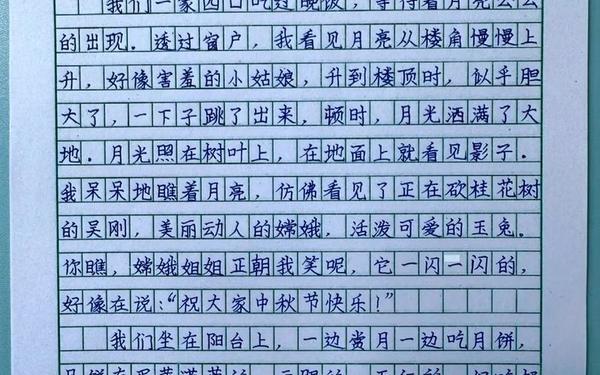 我们一家四口吃过晚饭，等待着月亮公公
的出现．透过窗户，我看见月亮从楼角慢慢上
升，好像害羞的小姑娘，升到楼顶时，似乎胆
大了，一下子跳了出来，顿时，月光洒满了大
地．月光照在树叶上，在地面上就看见影子．
我呆呆地瞧着月亮，仿佛看见了正在砍桂花树
的吴刚，美丽动人的嫦娥，活泼可爱的玉兔．
你瞧，嫦娥姐姐正朝我笑呢，它一闪一闪的，
好像在说："祝大家中秋节快乐！"
我们坐在阳台上，一边赏月一边吃月饼，
月饼有蛋黄莲蓉的